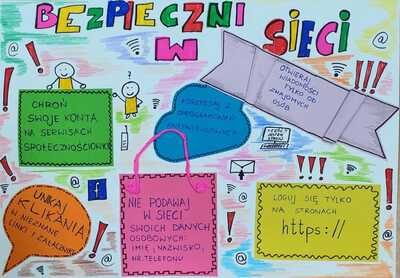 BEZPIECZNI
W SIECI
OTWIERAJ
WIADOMOŚCI
TYLKO OD
ZNAJOMYCH
OSÓB
CHROŃ
SWOJE KONTA
NA SERWISACH
SPOŁECZNOŚCIOWYCH
KORZYSTAJ Z
OPROGRAMOWAŃ
ANTYWIRUSOWYCH
UNIKAJ
KLIKANIA
W NIEZNANE
LINKI I ZAŁĄCZNIKI
f
NIE PODAWAJ
W SIECI
SWOICH DANYCH
OSOBOWYCH:
IMIĘ, NAZWISKO,
NR. TELEFONU
LOGUJ SIĘ TYLKO
NA STRONACH
https://